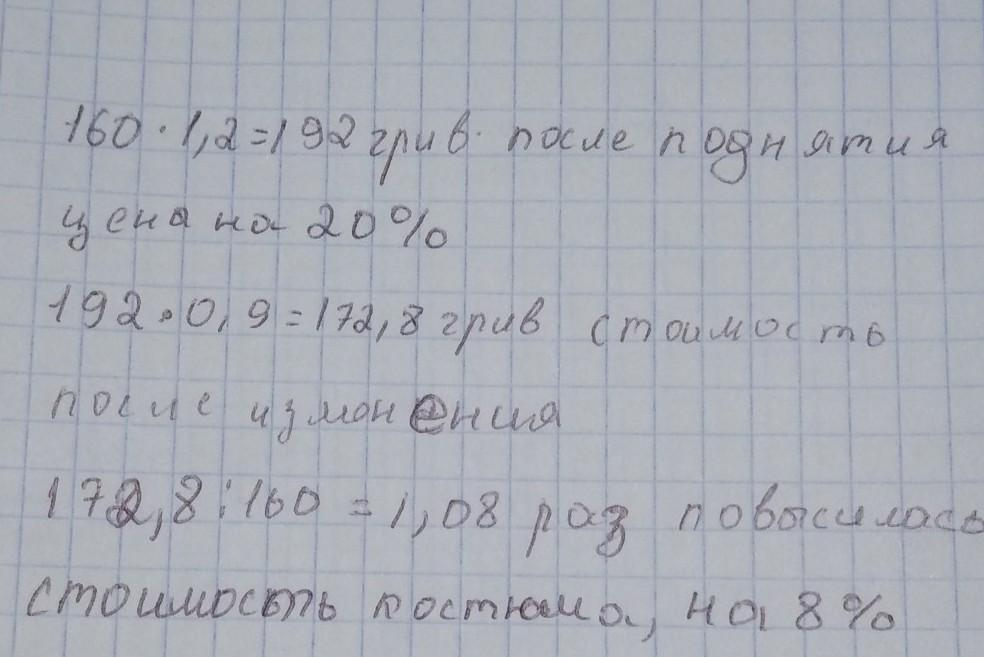 160 · 1,2 = 192 грив. после поднятия
цена на 20%
192 · 0,9 = 172,8 грив стоимость
после изменения
172,8 : 160 = 1,08 раз повысилась
стоимость костюма, на 8%